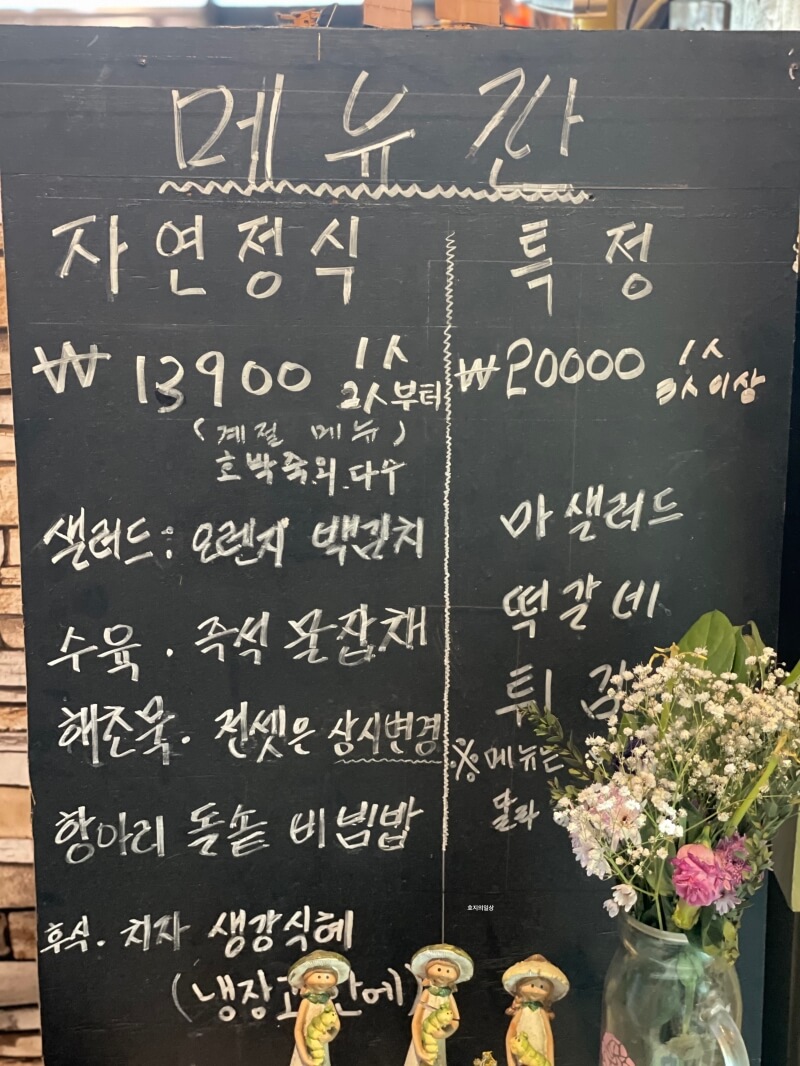 메뉴판
자연정식
₩ 13900 1人
2人부터
(계절 메뉴)
호박죽외.다수
샐러드: 오렌지 백김치
수육. 즉석 문잡채
해초묵. 전셋은 상시변경
항아리 돌솥 비빔밥
후식. 치자 생강식혜
(냉장고 안에)
특정
₩20000 1人
3人이상
마샐러드
떡갈비
튀김
※ 메뉴는
달라
호지의일상